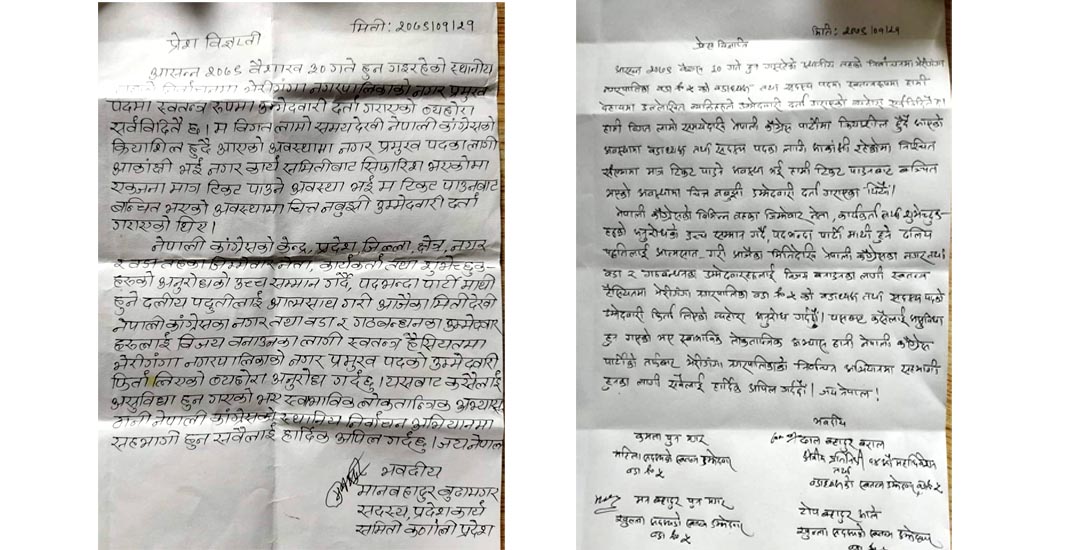 मिती: २०७९।०१।२१
प्रेश विज्ञप्ती
आसन्न २०७९ वैशाख ३० गते हुन गइरहेको स्थानीय
तहको निर्वाचनमा भेरीगंगा नगरपालिकाको नगर प्रमुख
पदमा स्वतन्त्र रुपमा उम्मेदवारी दर्ता गराएको व्यहोरा
सर्वविदितै छ। म विगत लामो समयदेखी नेपाली कांग्रेसको
क्रियाशिल हुदै आएको अवस्थामा नगर प्रमुख पदका लागी
आकांक्षी भई नगर कार्य समितीबाट सिफारिश भएकोमा
एकजना मात्र टिकट पाउने अवस्था भई म टिकट पाउनबाट
बन्चित भएको अवस्थामा चित्त नबुझी उम्मेदवारी दर्ता
गराएको थिए।
नेपाली कांग्रेसको केन्द्र, प्रदेश, जिल्ला, क्षेत्र, नगर
र वडा तहका जिम्मेवार नेता, कार्यकर्ता तथा शुभेच्छुक-
हरुको अनुरोधको उच्च सम्मान गर्दै पदभन्दा पार्टी माथी
हुने दलीय पद्दतीलाई आत्मसाथ गरी आजैका मितीदेखी
नेपाली कांग्रेसका नगर तथा वडा र गठबन्धनका उम्मेदवार
हरुलाई विजय बनाउनका लागी स्वतन्त्र हैसियतमा
भेरीगंगा नगरपालिकाको नगर प्रमुख पदको उम्मेदवारी
फिर्ता लिएको व्यहोरा अनुरोध गर्दछु। यसबाट कसैलाई
असुविधा हुन गएको भए स्वभाविक लोकतान्त्रिक अभ्यास
मानी नेपाली कांग्रेसको स्थानिय निर्वाचन अभियानमा
सहभागी हुन सवैलाई हार्दिक अपिल गर्दछु। जय नेपाल
भवदीय
मानबहादुर बुढामगर
सदस्य, प्रदेश कार्य
समिती कर्णाली प्रदेश
मिति: २०७९।०१।२१
प्रेस विज्ञप्ति
आसन्न २०७९ बैशाख ३० गते हुन गइरहेको स्थानीय तहको निर्वाचनमा भेरीगंगा
नगरपालिका वडा नं ५ को वडाध्यक्ष तथा सदस्य पदमा स्वतन्त्ररुपमा हामी
उम्मेदवारी दर्ता गराएको व्यहोरा सर्वविदितै छ।
हामी विगत लामो समयदेखि नेपाली काँग्रेस पार्टीमा क्रियाशिल हुँदै आएको
अवस्थामा वडाध्यक्ष तथा सदस्य पदका लागी आकांक्षी रहेकोमा निश्चित
संख्यामा मात्र टिकट पाउने अवस्था भई हामी टिकट पाउनबाट बञ्चित
भएको अवस्थामा चित्त नबुझी उम्मेदवारी दर्ता गराएका थियौं।
नेपाली काँग्रेसको विभिन्न तहका जिम्मेवार नेता, कार्यकर्ता तथा शुभेच्छुक-
हरुको अनुरोधको उच्च सम्मान गर्दै, पदभन्दा पार्टी माथी हुने दलिय
पद्दतिलाई आत्मसात गरी आजैका मितिदेखि नेपाली काँग्रेसका नगर तथा
वडा र गठबन्धनका उम्मेदवारहरुलाई विजय बनाउनका लागी स्वतन्त्र
हैसियतमा भेरीगंगा नगरपालिका वडा नं ५ को वडाध्यक्ष तथा सदस्य पदको
उम्मेदवारी फिर्ता लिएको व्यहोरा अनुरोध गर्दछौं। यसबाट कसैलाई असुविधा
हुन गएको भए स्वभाविक लोकतान्त्रिक अभ्यास मानी नेपाली काँग्रेस
पार्टीको तर्फबाट भेरीगंगा नगरपालिकाको निर्वाचन अभियानमा सहभागी
हुनका लागी सबैलाई हार्दिक अपिल गर्दछौं। जय नेपाल!
भवदीय
कमला पुन मगर
महिला सदस्यको स्वतन्त्र उम्मेदवार
वडा नं ५
मन बहादुर पुन मगर
खुल्ला सदस्यको स्वतन्त्र उम्मेदवार
वडा नं ५
लाल बहादुर बराल
क्षेत्रीय प्रतिनिधी १४ औं महाधिवेशन
तथा
वडाध्यक्षको स्वतन्त्र उम्मेदवार
टोप बहादुर
खुल्ला सदस्यको स्वतन्त्र उम्मेदवार
वडा नं ५